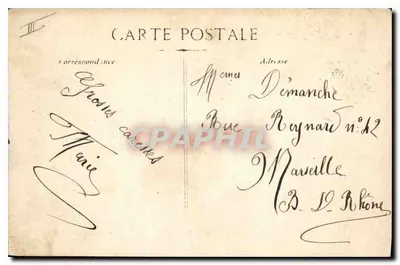 III
CARTE POSTALE
Correspondance
Grosses caresses
Marie
Adresse
Mmes Démanche
Rue Reynard n° 12
Marseille
B. D. Rhône
CPAPHIL